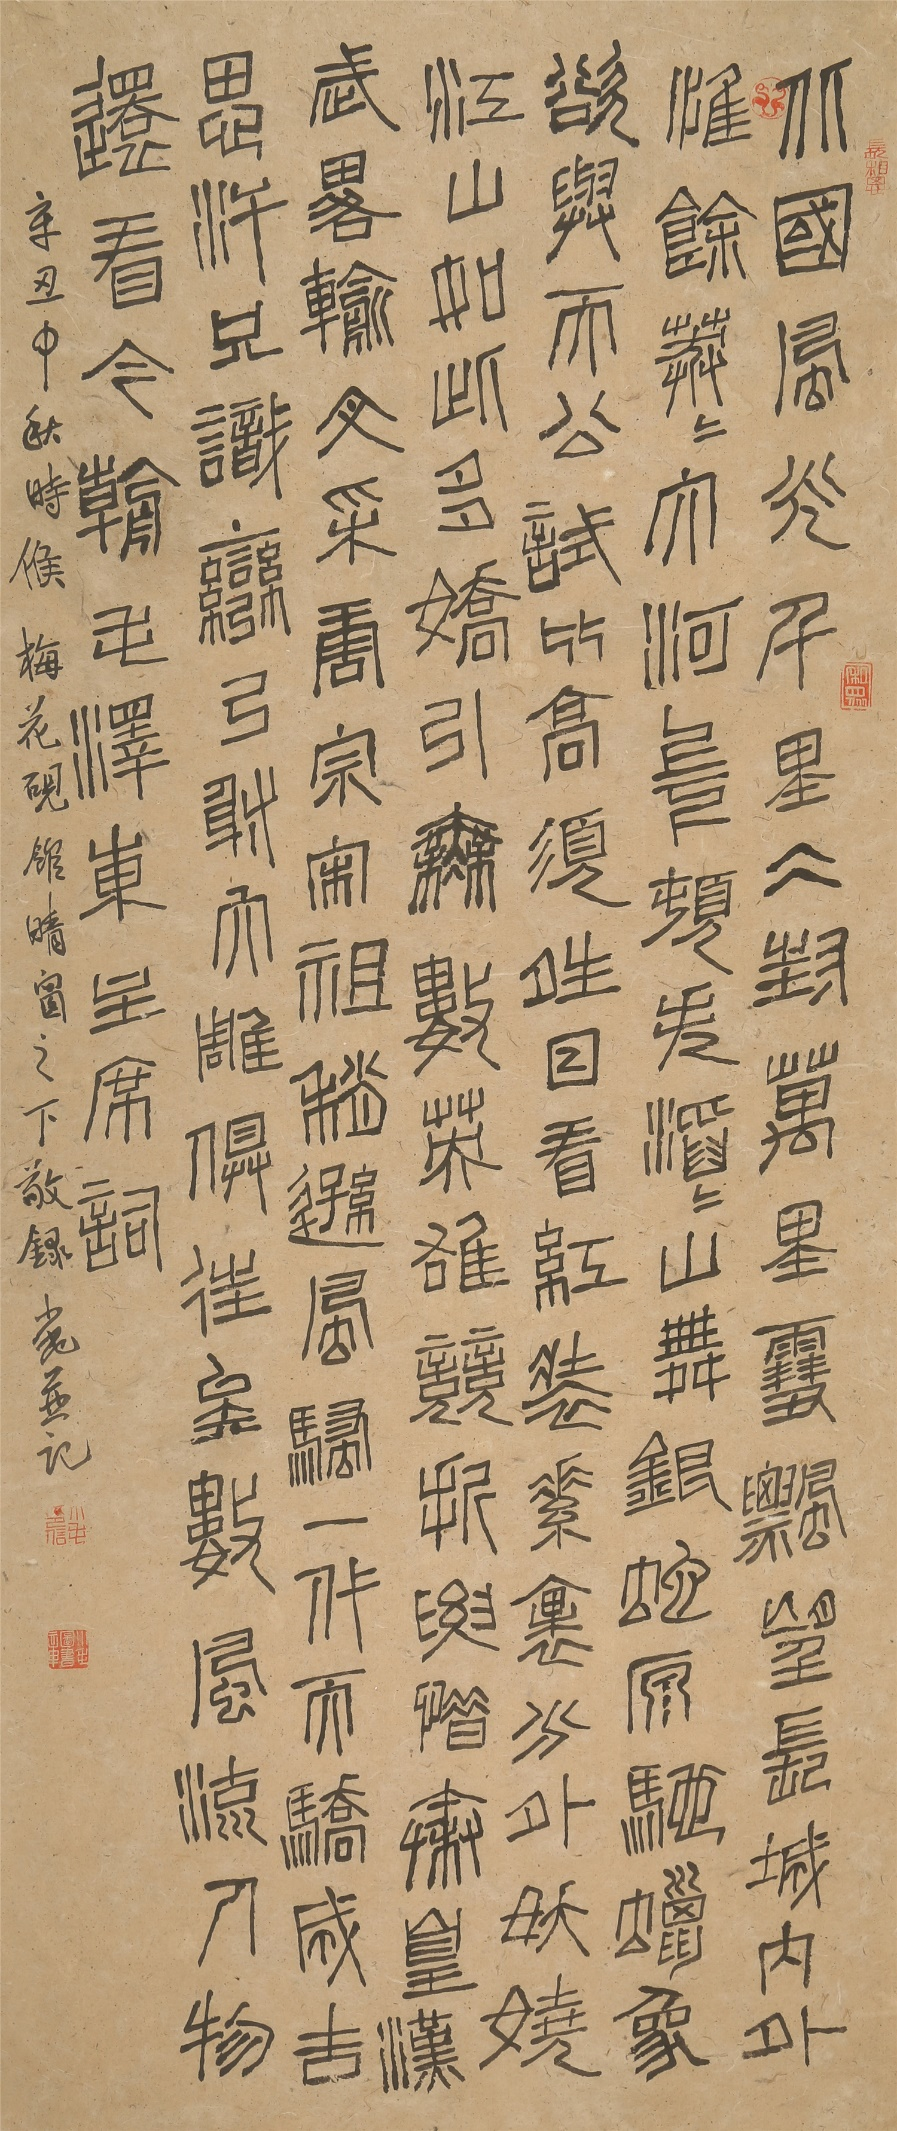 北國風光千里冰封萬里雪飄望長城內外
惟餘莽〻大河上下頓失滔〻山舞銀蛇原馳蠟象
欲與天公試比高須晴日看紅裝素裹分外妖嬈
江山如此多嬌引無數英雄競折腰惜秦皇漢
武略輸文采唐宗宋祖稍遜風騷一代天驕成吉
思汗只識彎弓射大雕俱往矣數風流人物
還看今朝毛澤東主席詞
辛丑中秋時候梅花硯館晴窗之下敬錄 並記